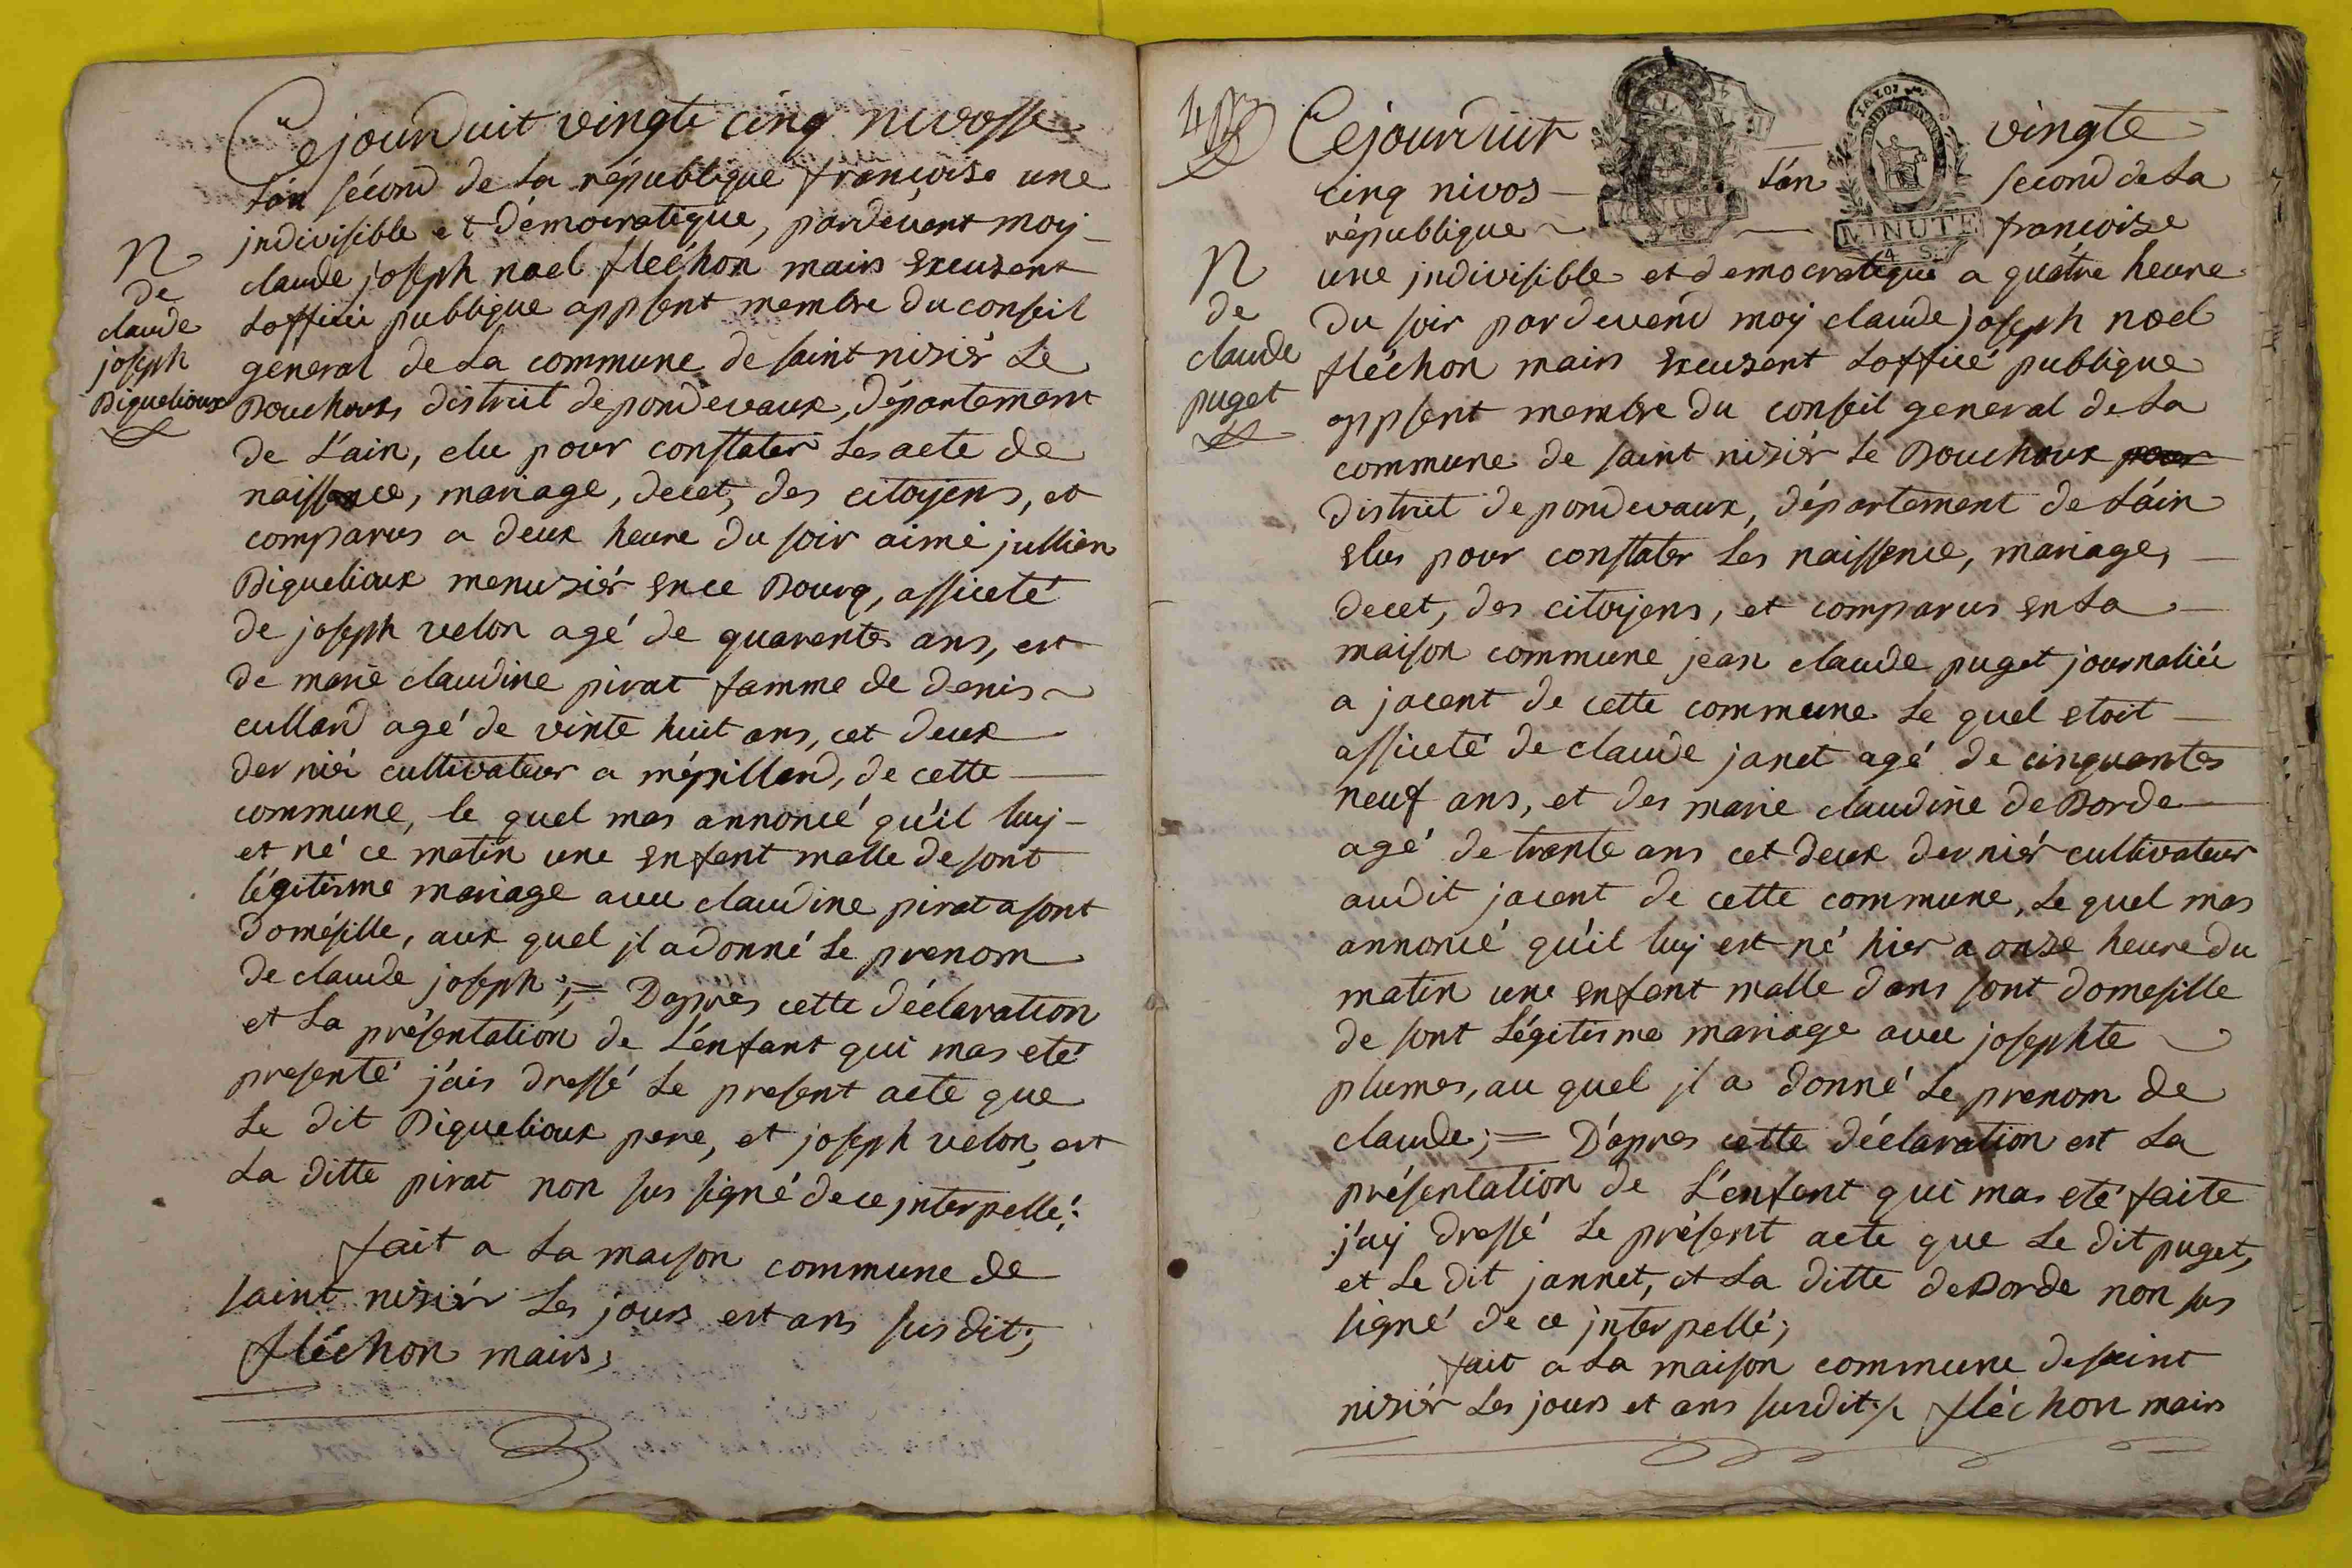 Cejourduit vingte cinq nivosse
L'an sécond de La république françoise une
jndivisible et démocratique, pardevent moy
claude joseph noel fléchon mairs Excersent
Loffice publique appsent membre du conseil
general de La commune de saint nisiér Le
Bouchoux district depondevaux, département
de L'ain, elu pour constater Les acte de
naissence, mariage, decet, des citoyens, et
comparus a deux heure du soir aimé jullien
Biguelioux menusiér En ce Bourg, assicté
de joseph velon agé de quarente ans, et
de marie claudine pirat famme de denis
culland agé de vinte huit ans, cet deux
derniér cultivateur a mépilland, de cette
commune, le quel mas annoncé qu'il luy
et né ce matin une Enfant malle de sont
légitisme mariage avec claudine pirat a sont
domésille, aux quel jl a donné Le prenom
de claude joseph ;= D'apres cette déclaration
et La présentation de L'énfant qui mas eté
presenté j'ais dressé Le present acte que
Le dit Biguelioux pere, et joseph velon, et
La ditte pirat non sus signé de ce jnterpellé;
fait a La maison commune de
saint nisiér Les jours et ans sus dit;
fléchon mairs;
N
de
claude
joseph
Biguelioux
Cejourduit vingte
cinq nivos L'an second de La
république françoise
MINUTE
MINUTE
4 S.
une jndivisible et democratique a quatre heure
du soir pardevend moy claude joseph noel
fléchon mairs Excersent Loffice publique
appsent membre du conseil general de La
commune de saint nisiér Le Bouchoux pour
district depondevaux, département de L'ain
Elus pour constater Les naissence, mariage,
decet, des citoyens, et comparus En La
maison commune jean claude puget journaliée
a jacent de cette commune Le quel Etoit
assicté de claude janet agé de cinquante
neuf ans, et des marie claudine deBorde
agé de trante ans cet deux derniér cultivateur
audit jacent de cette commune, Le quel mas
annoncé qu'il luy est né hier a onze heure du
matin une Enfant malle dans sont domesille
de sont Légitisme mariage avec josephte
plumes, au quel jl a donné Le prenom de
claude;= D'apres cette déclaration et La
présentation de L'enfent qui mas eté faite
j'ay dressé Le présent acte que Le dit puget,
et Le dit jannet, et La ditte deBorde non sus
signé de ce jnterpellé;
fait a La maison commune de saint
nisiér Les jours et ans susdit /. fléchon mairs
N
de
claude
puget